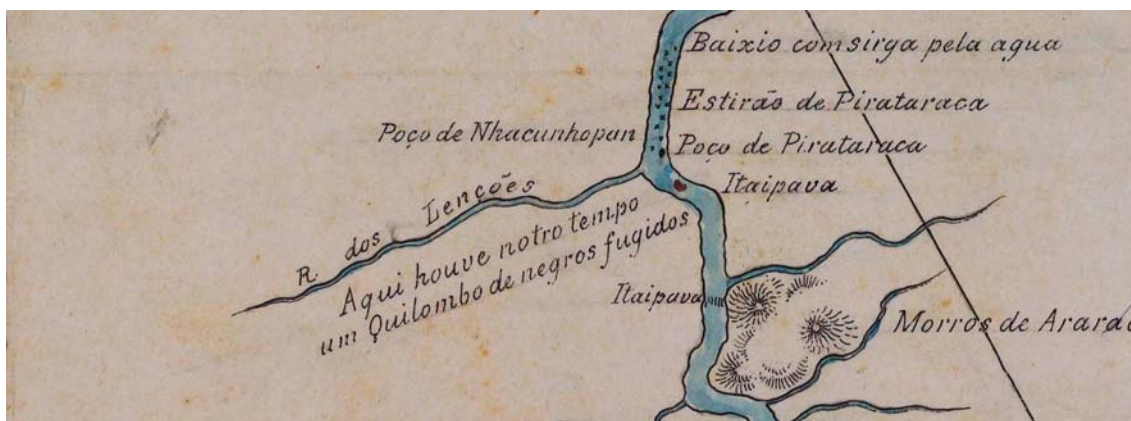 Baixio com sirga pela agua
Estirão de Pirataraca
Poço de Nhacunhopan
Poço de Pirataraca
Itaipava
R. dos Lenções
Aqui houve notro tempo
um Quilombo de negros fugidos
Itaipava
Morros de Arara